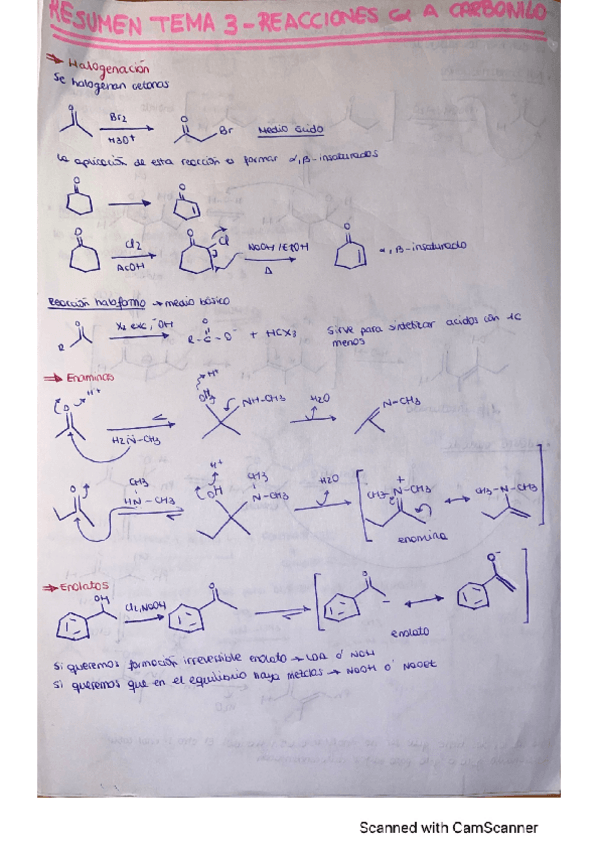 RESUMEN TEMA 3 - REACCIONES Cα A CARBONILO
⇒ Halogenación
Se halogenan cetonas
O Br2 H3O+ O Br Medio ácido
La aplicación de esta reacción a formar α,β-insaturados
O O
O Cl2 AcOH O Cl NaOH/EtOH Δ O α,β-insaturado
Reacción haloformo → medio básico
R O X2 exc, ⁻OH R-C-O⁻ O + HCX3 Sirve para sintetizar acidos con 1C menos
⇒ Enaminas
O H+ H2N-CH3 H+ OH NH-CH3 H2O N-CH3
O CH3 HN-CH3 H+ OH CH3 N-CH3 H2O CH3-N-CH3 + CH3-N-CH3
enamina
⇒ Enolatos
OH Cl2, NaOH O O O⁻
enolato
Si queremos formación irreversible enolato → LDA ó NaH
Si queremos que en el equilibrio haya mezclas → NaOH ó NaOEt
Scanned with CamScanner